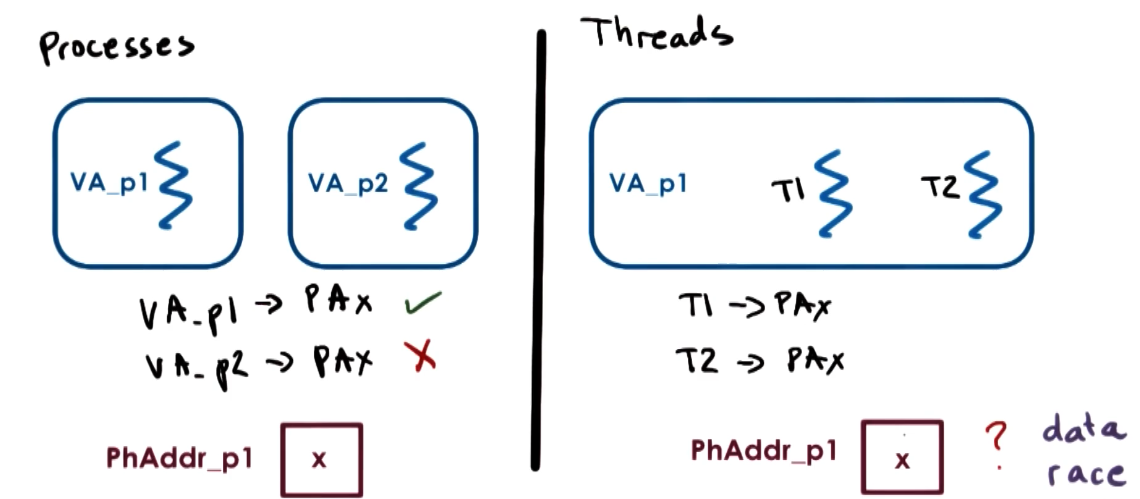 Processes
VA_p1
VA_p2
VA_p1 → PAx ✓
VA_p2 → PAx X
PhAddr_p1
x
Threads
VA_p1
T1
T2
T1 → PAx
T2 → PAx
PhAddr_p1
x
? data
race